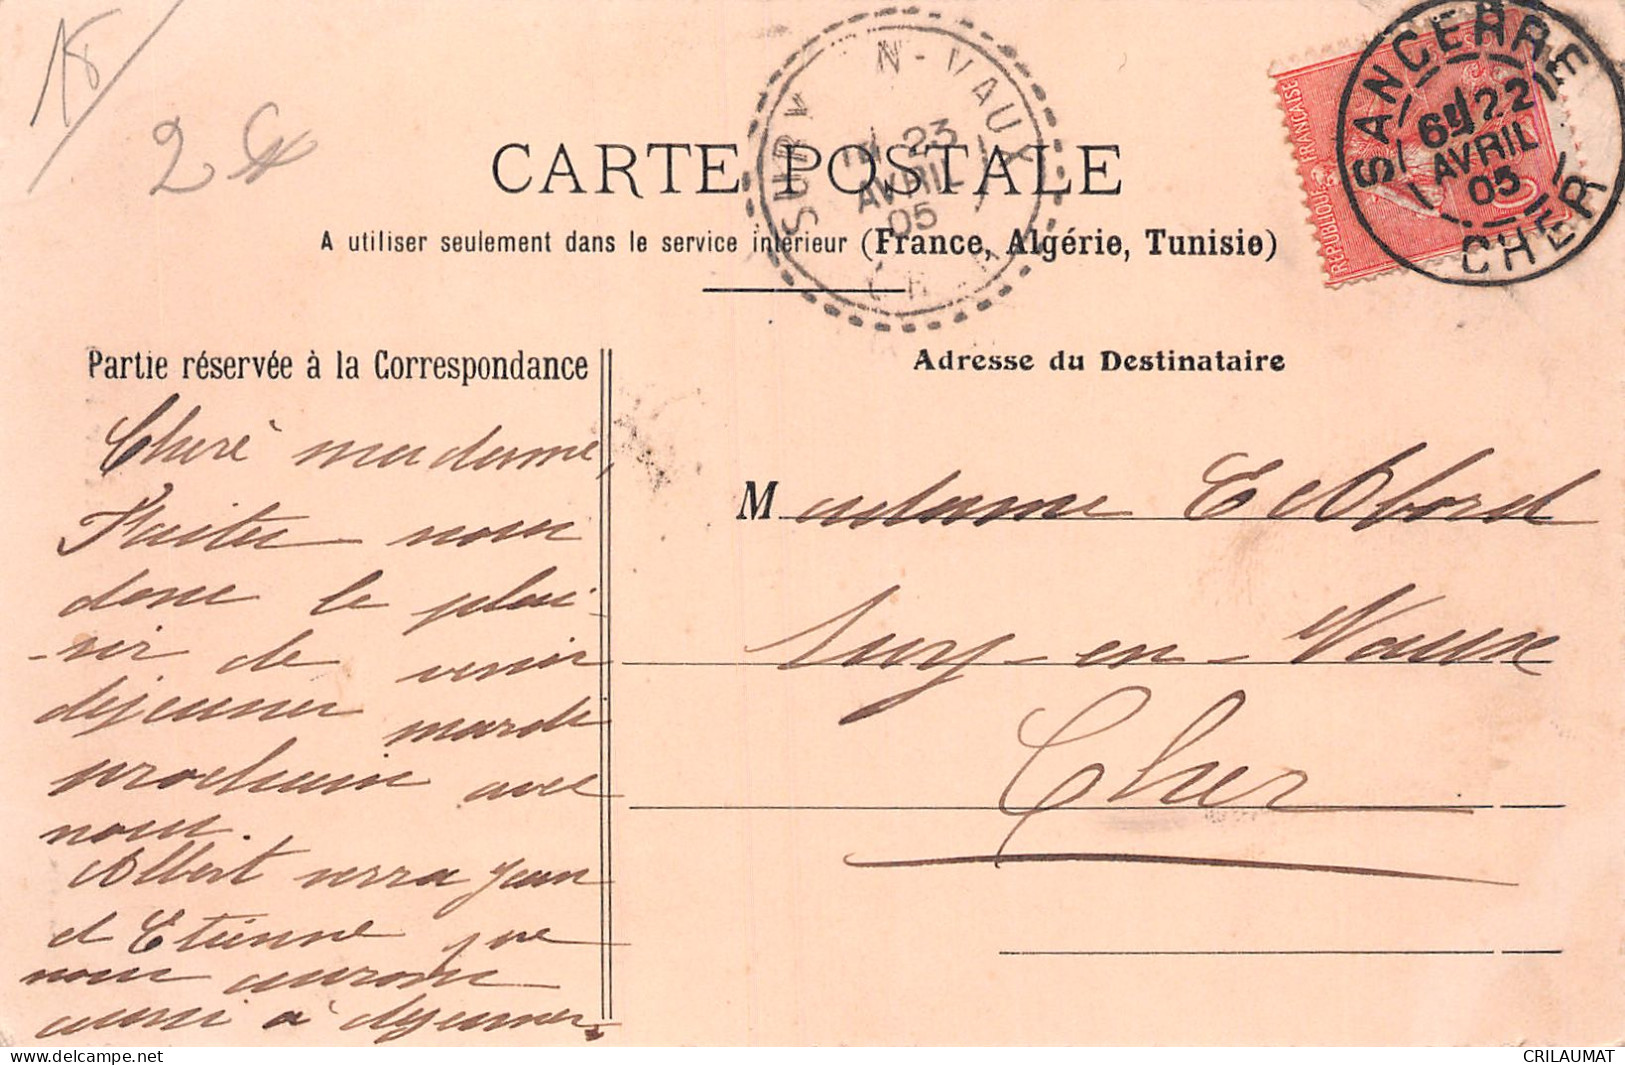 18
2
CARTE POSTALE
A utiliser seulement dans le service intérieur (France, Algérie, Tunisie)
SURY EN-VAUX
23
AVRIL
05
CHER
REPUBLIQUE FRANÇAISE
SANCERRE
22
AVRIL
05
CHER
Partie réservée à la Correspondance
Adresse du Destinataire
Cheré madame,
Faites nous
donc le plai-
-sir de venir
dejeuner mardi
prochain avec
nous.
Albert verra Jean
et Etienne que
nous aurons
aussi à dejeuner.
Madame E Abord
Sury-en-Vaux
Cher
delcampe.net
CRILAUMAT